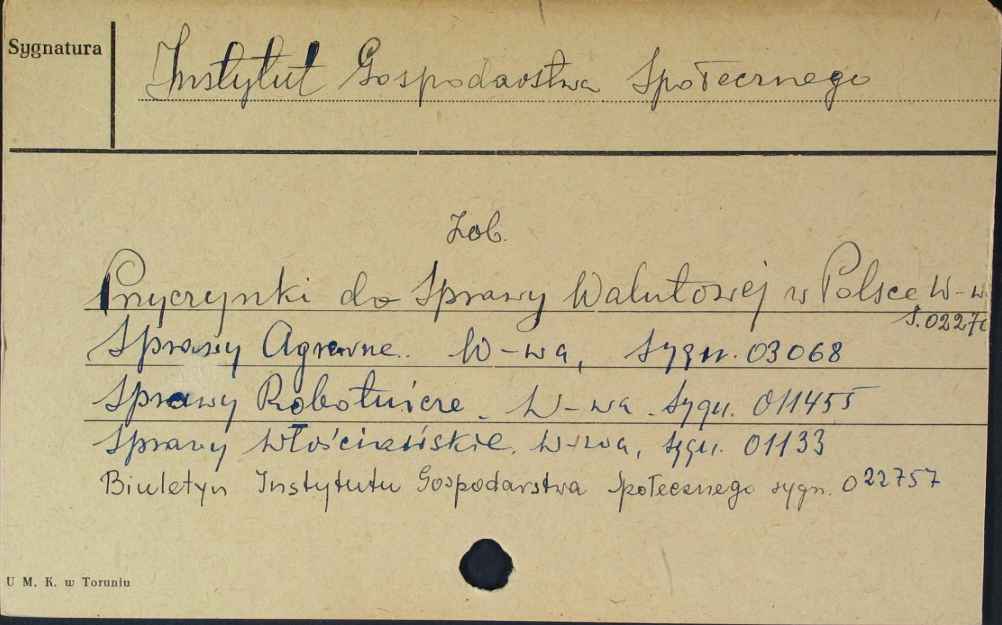 Sygnatura
Instytut Gospodarstwa Społecznego
Zob.
Przyczynki do Sprawy Walutowej w Polsce W-w
S.02276
Sprawy Agrarne. W-wa, sygn. 03068
Sprawy Robotnicze. W-wa. sygn. 011455
Sprawy Włościańskie. W-wa, sygn. 01133
Biuletyn Instytutu Gospodarstwa Społecznego sygn. 022757
U M. K. w Toruniu